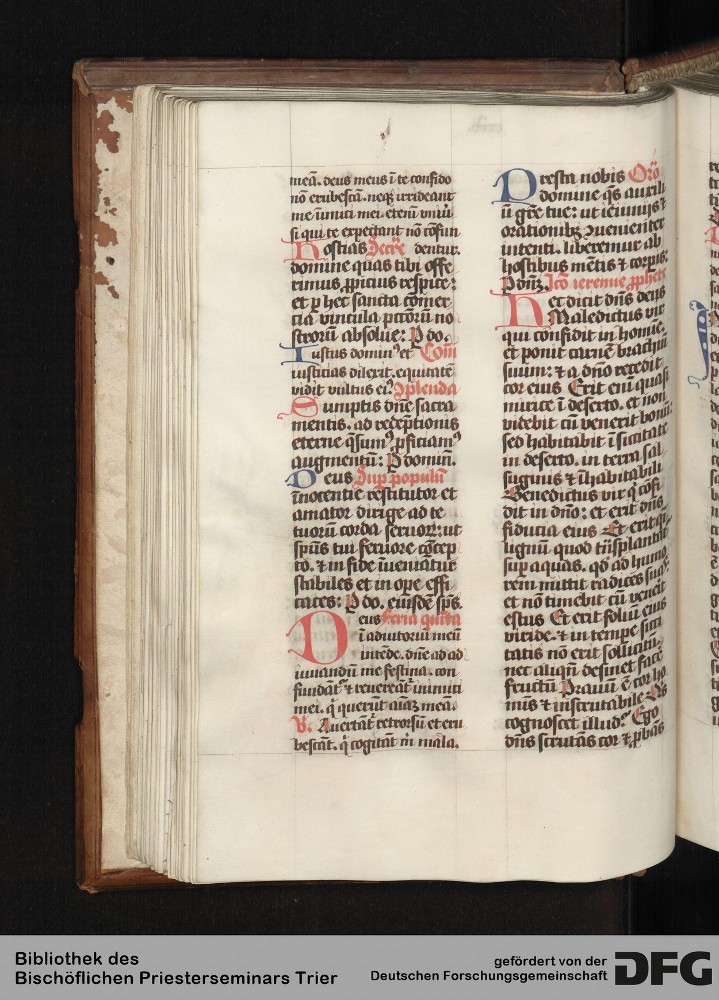 meā. deus meus ī te confido
nō erubescā. neqꝫ irrideant
me īmici mei. etenī vniūsi
si qui te expectant nō cōfun
Hostias Secre dentur.
domine quas tibi offe
rimus ꝓpicius respice:
et ꝑ hec sancta cōmer
cia vincula pctōrū no
strorū absolue: P do.
Iustus dominꝰ et Com̄
iusticias dilexit. equitatē
vidit vultus eiꝰ. Cplenda
Sumptis dn̄e sacra
mentis. ad redēptionis
eterne qs̄umꝰ ꝓficiamꝰ
augmentū: P domin.
Deus Suꝑ populū
īnocentie restitutor et
amator dirige ad te
tuorū corda seruoꝝ: ut
spūs tui feruore cōcep
to. ⁊ in fide īueniātur
stabiles et in oꝑe effi
caces: P do. eiusdē sps̄.
Deus Feria quīta
ī adiutoriū meū
intēde. dn̄e ad ad
iuuandū me festina. con
fundāt᷑ ⁊ reuereāt᷑ inimici
mei. q̇ querūt aīaꝫ mea.
V. Auertāt᷑ retrorsū et eru
bescāt. q̇ cogitāt m̄ mala.
Presta nobis Orō
domine qs̄ auxili
ū gr̄e tue: ut ieiunijs ⁊
orationibꝫ ꝯuenienter
intenti. liberemur ab
hostibus mētis ⁊ corpis:
P dn̄ꝫ. Lcō ieremie ꝓphete
Hec dicit dn̄s deus
Maledictus vir
qui confidit in homīe.
et ponit carnē brachiū
suum: ⁊ a dn̄o recedit
cor eius Erit enī quasi
mirice ī deserto. et non
videbit cū venerit bonū:
sed habitabit ī siccitate
in deserto. in terra sal
suginis ⁊ īhabitabili
Benedictus vir q̇ cōfi
dit in dn̄o: et erit dn̄s
fiducia eius Et erit qi̇
lignū quod trāsplantat᷑
suꝑ aquas. qd̄ ad humo
rem mittit radices suas:
et nō timebit cū venerit
estus Et erit foliū eius
viride. ⁊ in tempe sicci
tatis nō erit sollicitū.
nec aliqn̄ desinet facē
fructū Prauū ē cor ho
mīs ⁊ inscrutabile Qs̄
cognoscet illud? Ego
dn̄s scrutās cor ⁊ ꝓbās
Bibliothek des
Bischöflichen Priesterseminars Trier
gefördert von der
Deutschen Forschungsgemeinschaft
DFG